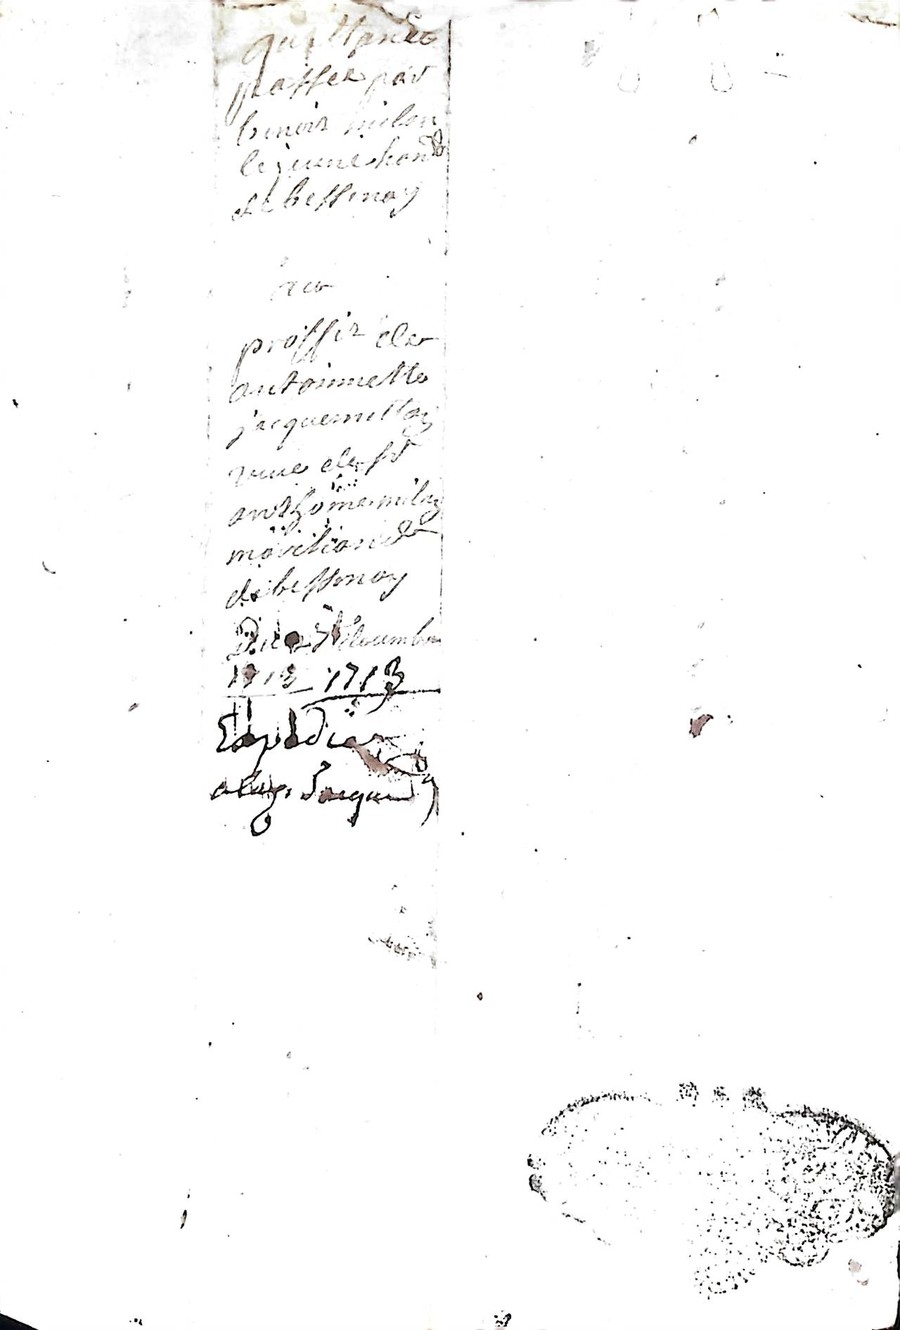 quittance
passee par
benoit milon
le jeune hon
de bessenay
au
proffit de
antoinnette
jacquemetton
viue de ft
anthoine milon
de bessenay
Du 27 decembre
1713 1713
Expedier
a lad. Jacquem